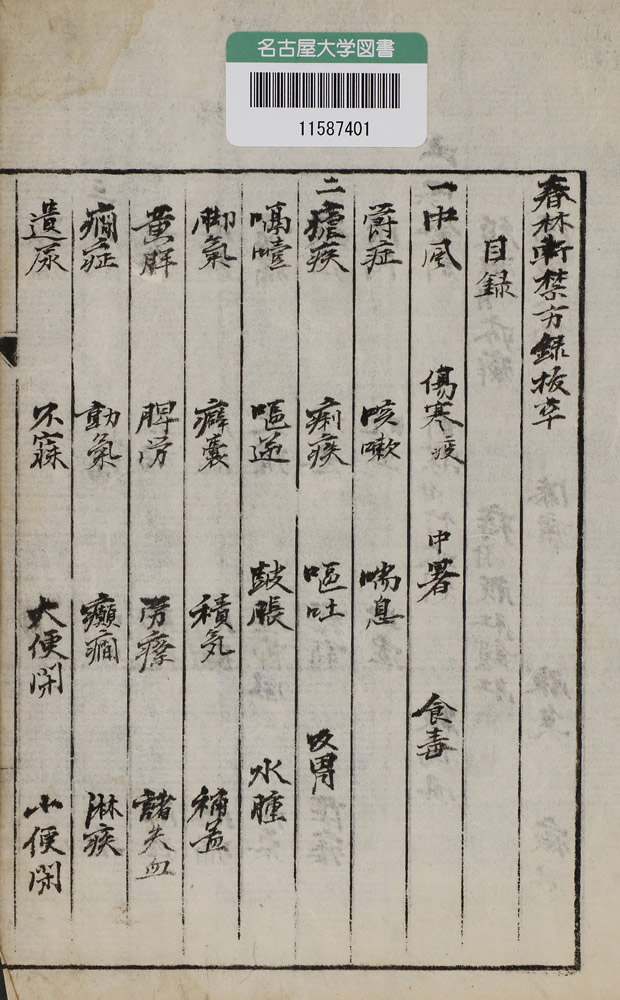 名古屋大学図書
11587401
春林軒禁方録抜萃
目録
一 中風 傷寒疫 中暑 食毒
欝症 咳嗽 喘息
二 瘧疾 痢疾 嘔吐 反胃
噎 嘔逆 皷脹 水腫
脚氣 癖嚢 積気 補益
黄胖 脾労 労瘵 諸失血
癇症 動氣 癲癇 淋疾
遺尿 不寐 大便閉 小便閉